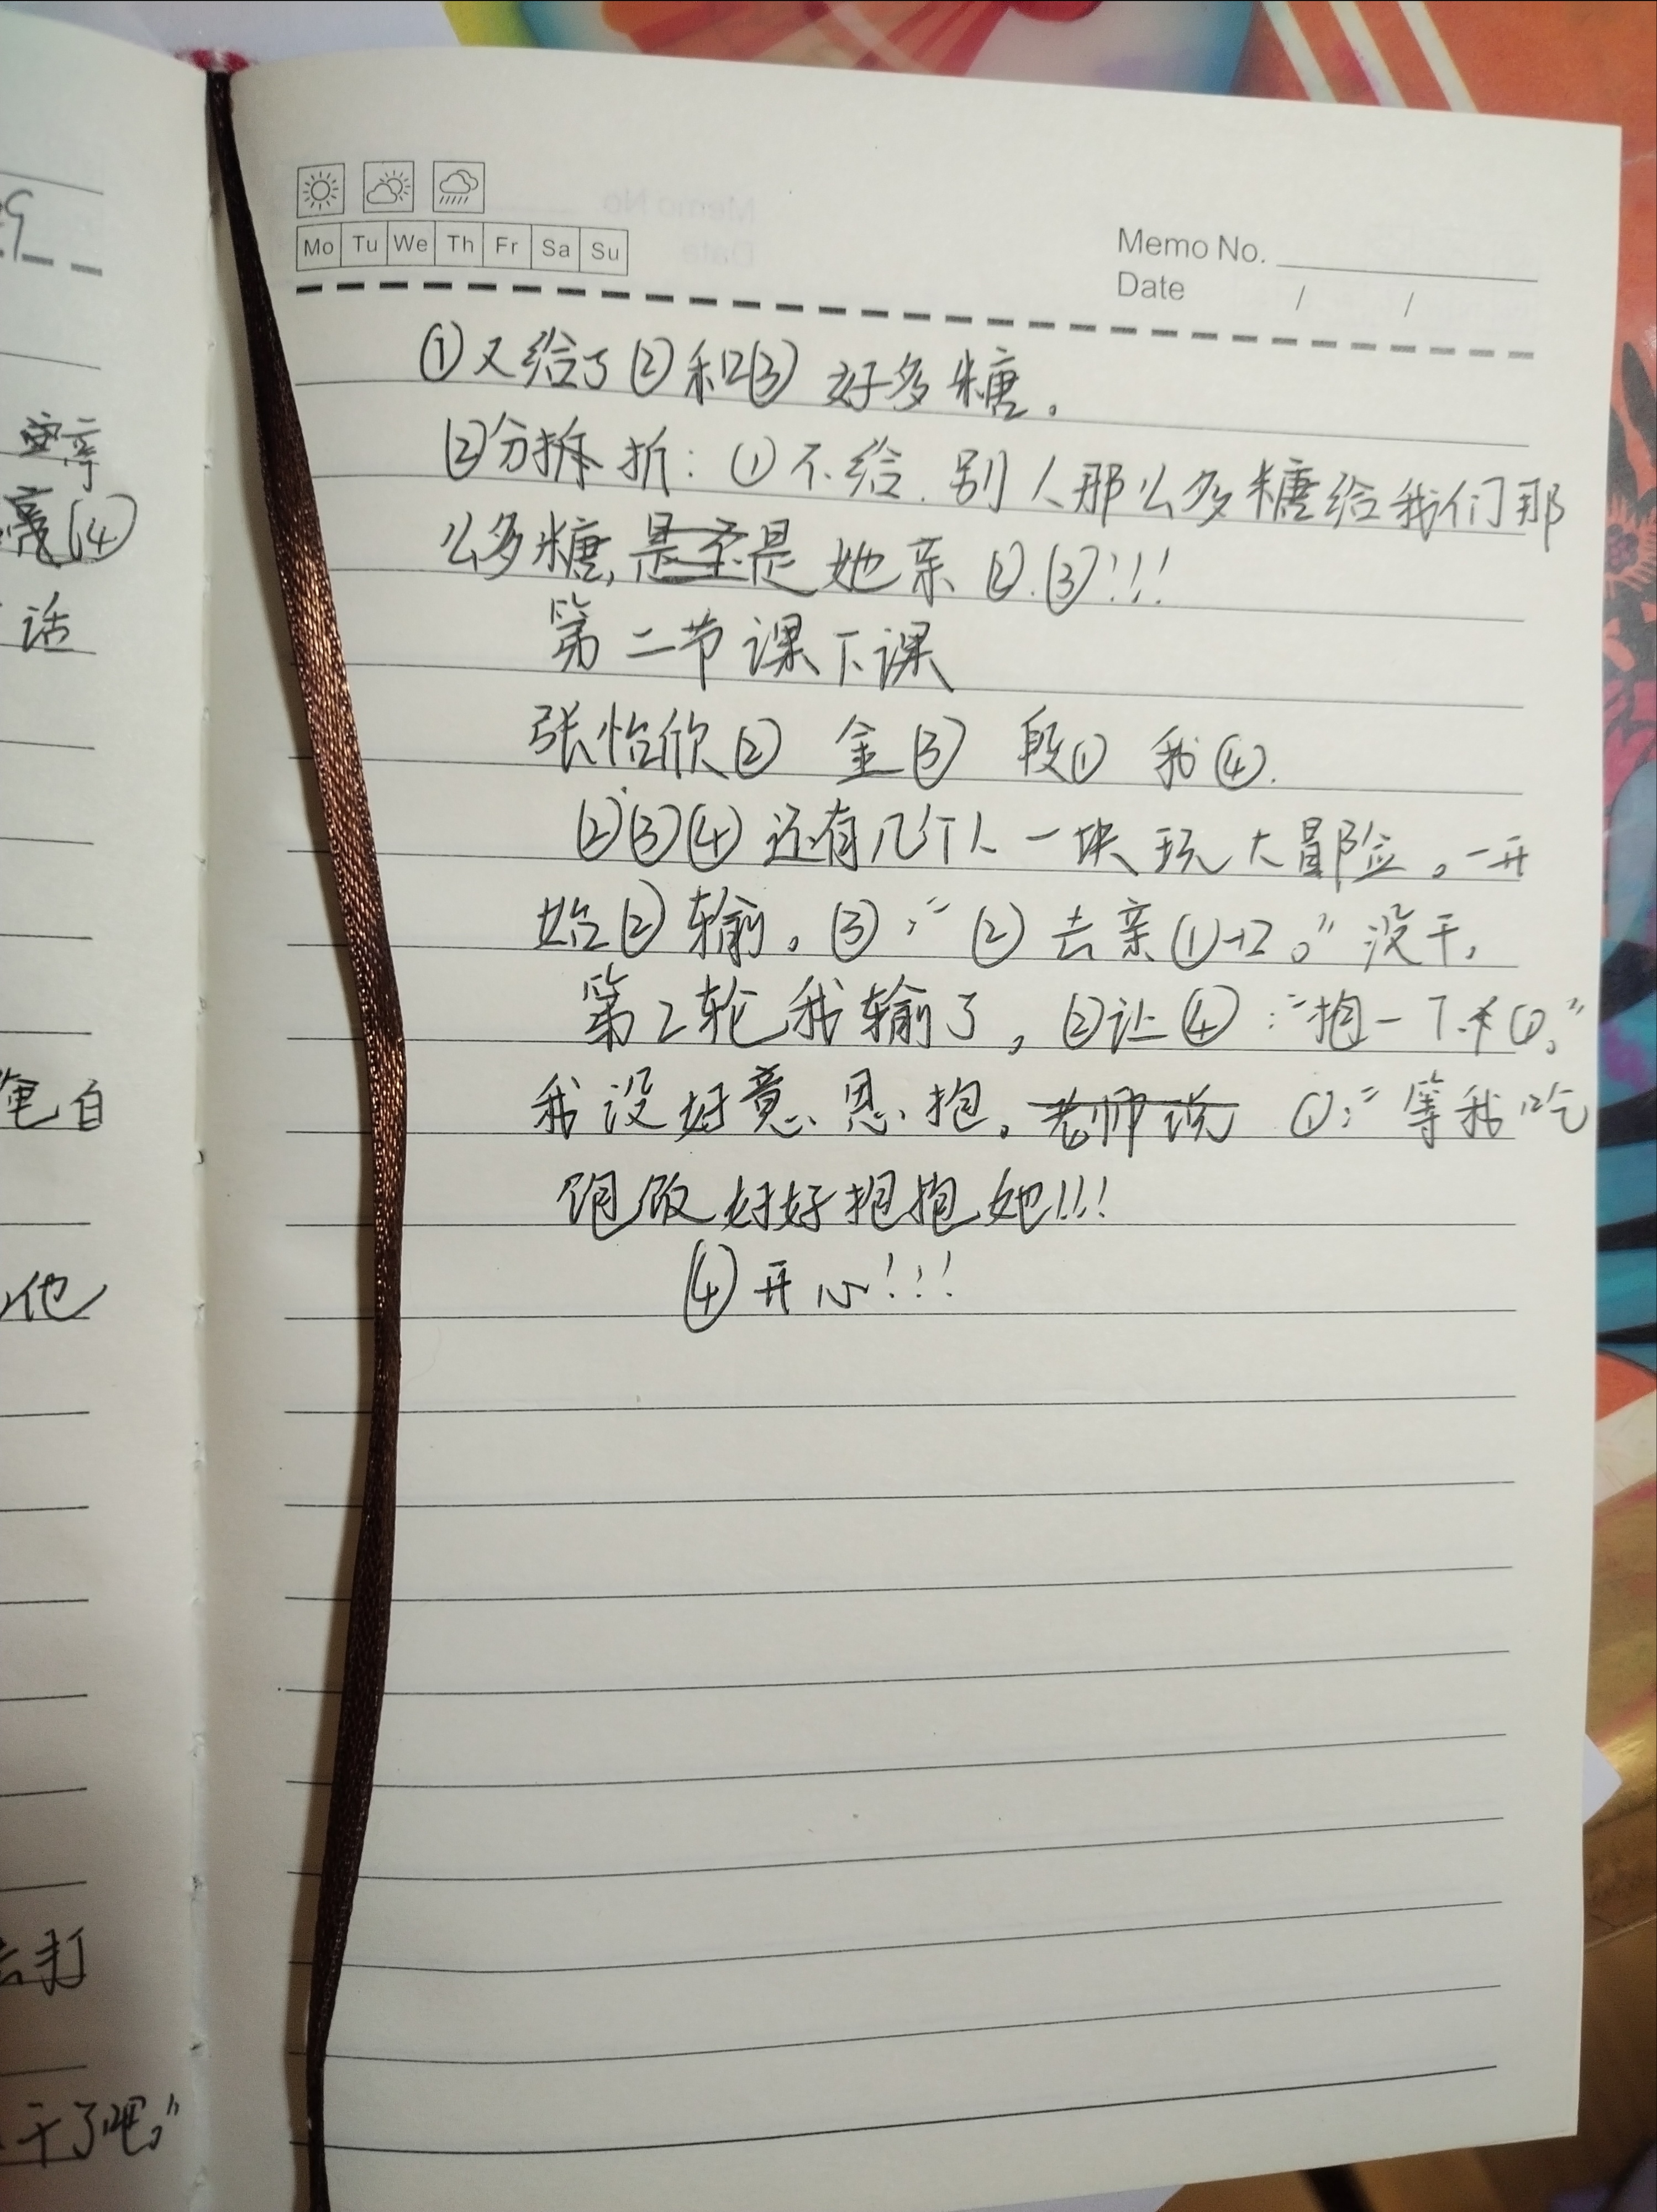 9
字
亮(4)
话
笔自
他
去打
干了吧。”
Mo Tu We Th Fr Sa Su
Memo No.
Date / /
①又给了②和③好多糖。
②分析:①不给别人那么多糖给我们那
么多糖,是她亲②.③!!!
第二节课下课
张怡欣② 金③ 段① 我④.
②③④还有几个人一块玩大冒险。一开
始②输。③:“②去亲①一口。”没干。
第2轮我输了,②让④:“抱一下①。”
我没好意思抱。老师说 ①:“等我吃
饱饭好好抱抱她!!!
④开心!!!